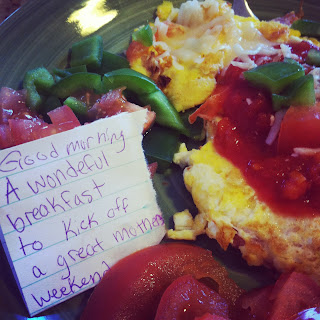 Good morning
A wondeful
breakfast
to kick off
a great mothers
weekend